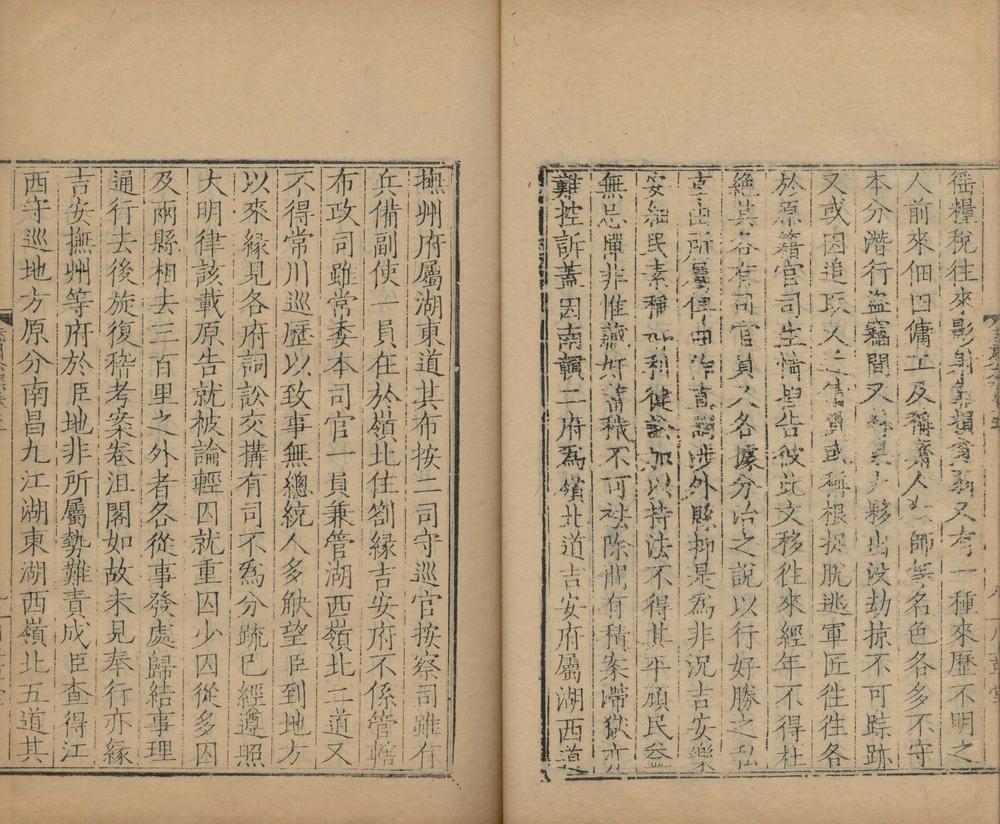 徭糧稅往來影射
又有一種來歷不明之
人前來佃田傭工及稱齋人
師等名色各多不守
本分潛行盜竊間又
夥出没劫掠不可踪跡
又或因追取
或稱根捉脱逃軍匠往往各
於原籍官司生情
告彼此文移往來經年不得杜
絶其各有司官員又各據分治之說以行好勝之私
涉外縣抑是爲非况吉安樂
安細民素稱
健訟加以持法不得其平頑民益
無忌憚非惟
不可袪除間有積案滯獄亦
難控訴蓋因南贛二府爲嶺北道吉安府屬湖西道
撫州府屬湖東道其布按二司守巡官按察司雖有
兵備副使一員在於嶺北住劄緣吉安府不係管轄
布政司雖常委本司官一員兼管湖西嶺北二道又
不得常川巡歷以致事無總統人多觖望臣到地方
以來緣見各府詞訟交搆有司不爲分䟽已經遵照
大明律該載原告就被論輕囚就重囚少囚從多囚
及兩縣相去三百里之外者各從事發處歸結事理
通行去後旋復稡考案卷沮閣如故未見奉行亦緣
吉安撫州等府於臣地非所屬勢難責成臣查得江
西守巡地方原分南昌九江湖東湖西嶺北五道其